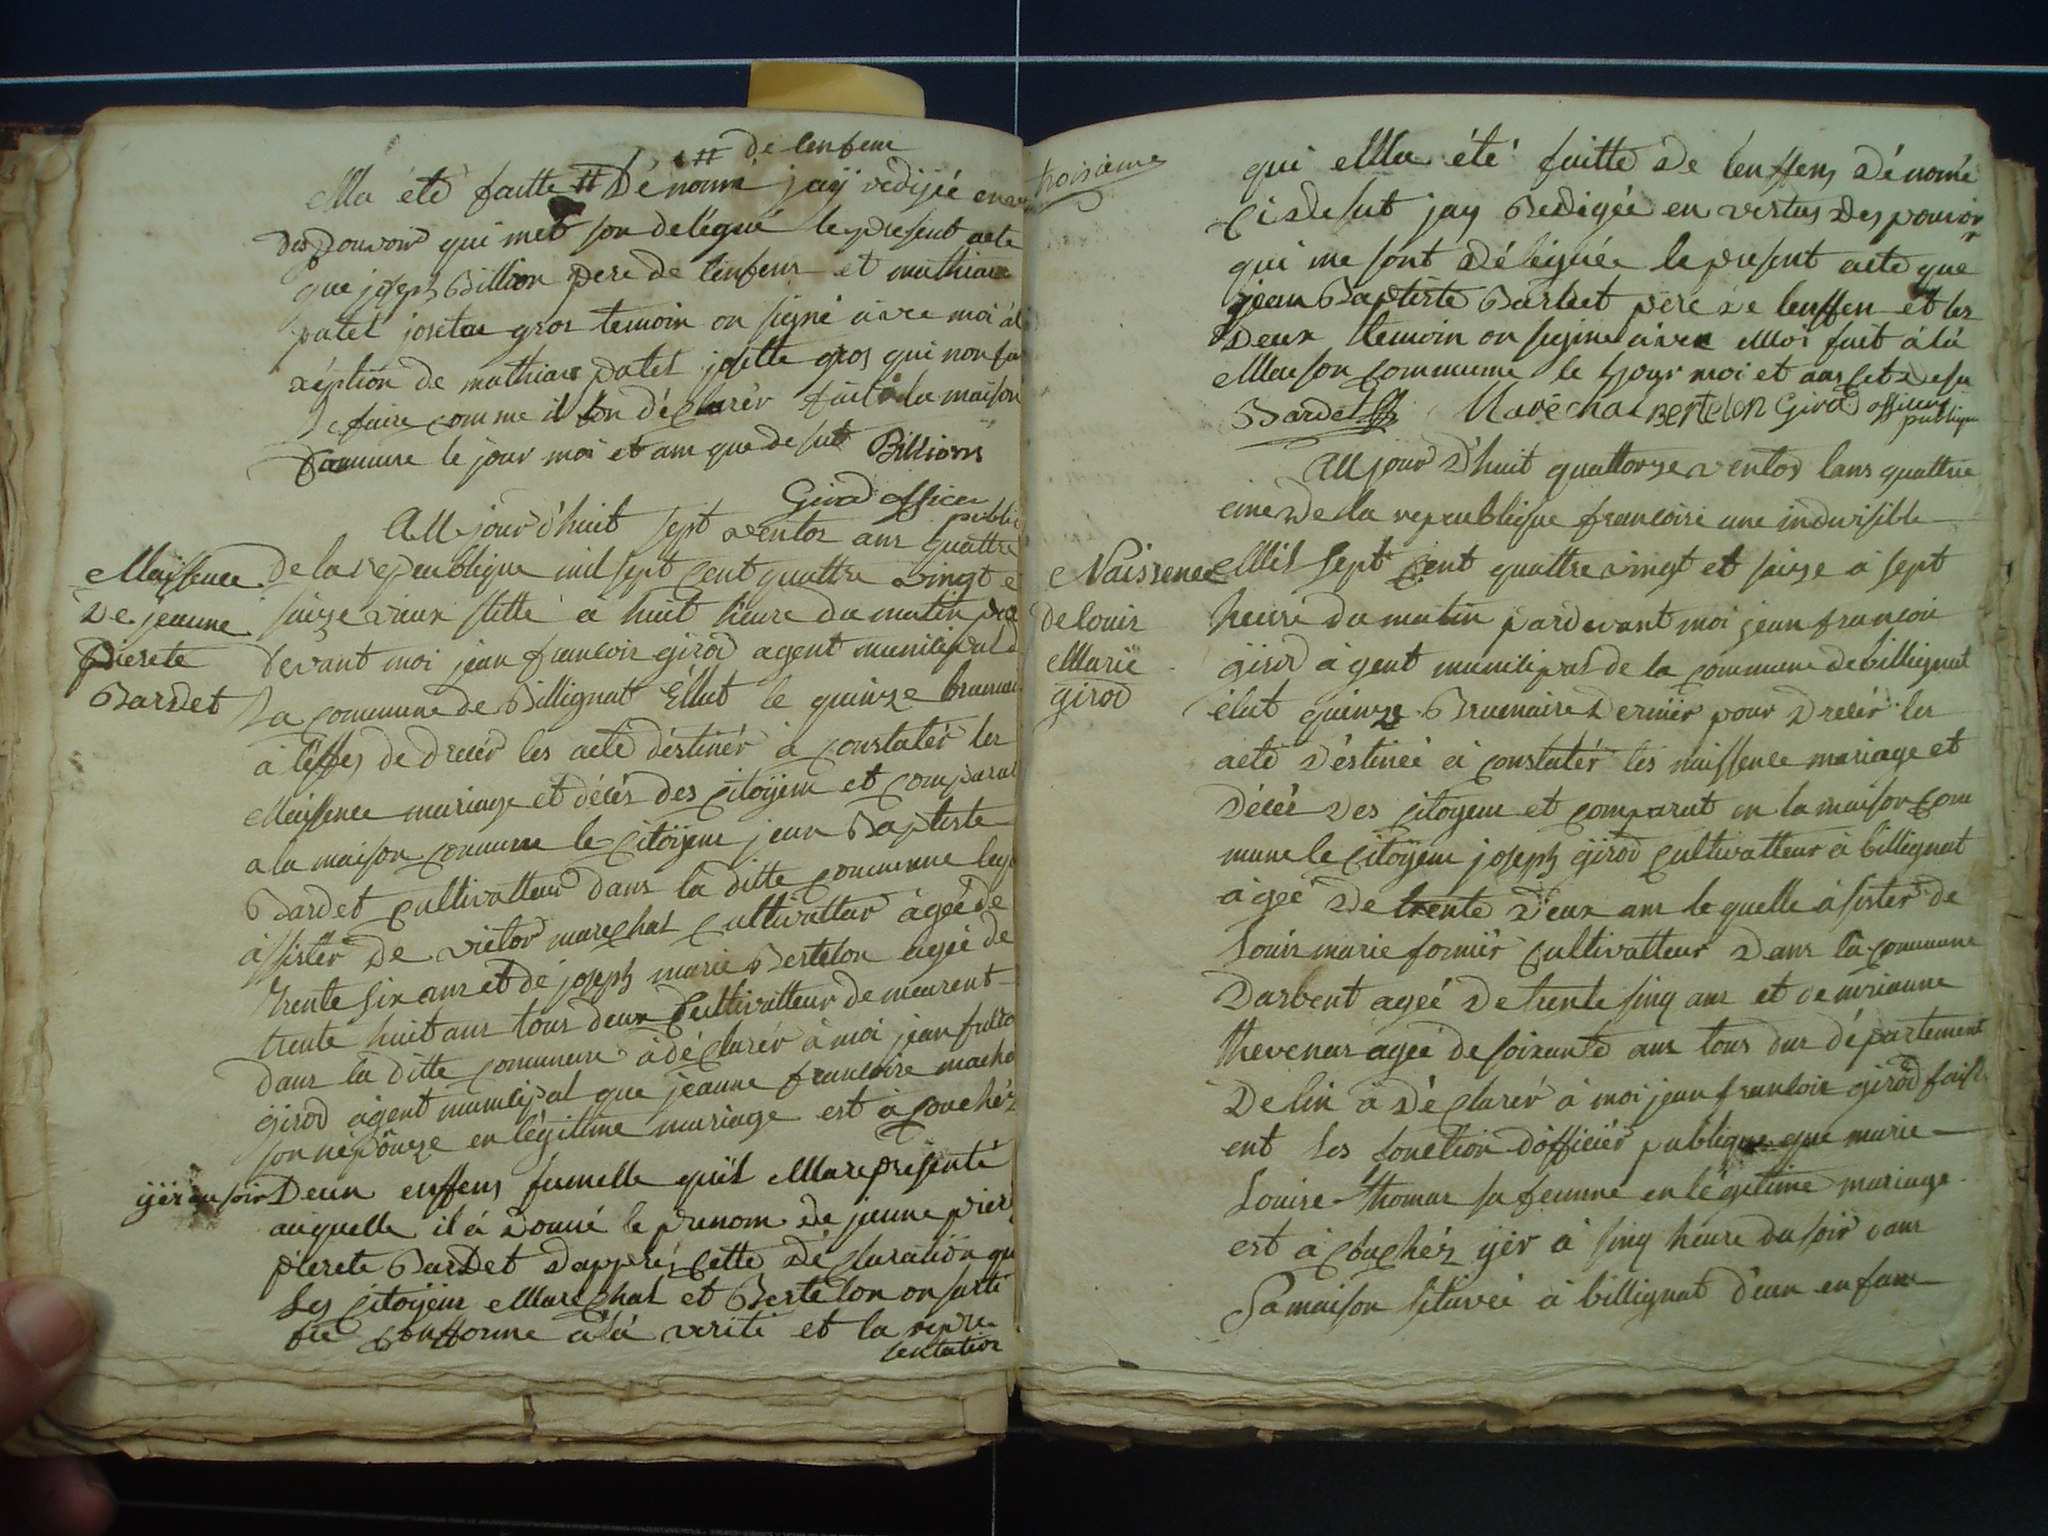 # de lenfent
Ma été faitte # Dénomé jaÿ redijée en
des pouvoir qui met son delégué le present acte
que joseph Billion pere de lenfens et mathiau
patet josetou gros temoin on signé avec moi à
xéption de mathiau patet josette gros qui non su
Le faire comme il lon déclarér fait à la maison
Commune le jour moi et am que desut Billions
Girod officer
public
AUjourd'huit sept ventos ans quattre
de la republique mil sept cent quattre vingt e
saize vieux stitte a huit heure du matin par
devant moi jean francoir girod agent municipal d
La commune de Billignat Ellut le quinze brumai
à léffes de drecér les acte déstinér à constatér les
Naissence mariage et décés des citoÿem et comparut
a la maison commune le citoÿene jean Baptiste
Bardet cultivatteur dans la ditte commune
assister de victor marechal cultivatteur âgée de
trente six ans et de joseph marie Bertelon agée de
trente huit ans tous deux cultivatteur demeurent
dans la ditte commune à déclarér à moi jean
girod agent municipal que jeanne francoise
son népouze en légitime mariage est à couchéz
ÿer au soir Deun enffens fumelle quil Ma represénté
au quelle il à donné le prenom de jeanne pier
pierete Bardet dapprés cette déclaration qu
Les citoÿeur Marechal et Bertelon on serti
fié conforme à la verité et la repre
sentation
Naissence
De jeanne
pierete
Bardet
troisieme
qui Ma été faitte de lenffens dénomé
ci desut jay Redigée en vertus des pouvoir
qui me sont déléguée le present acte que
jean Baptiste Bardet pere de lenffen et les
Deux temoin on signe avec Moi fait à là
Maison commune le jour moi et ans cit desu
Bardet Maréchal Bertelon Girod officier
publique
AUjour d'huit quattorze ventos lans quattrie
eme de la republique francoise une indivisible
Mil sept cent quattre vingt et saize à sept
heure du matin pardevant moi jean francoir
girod agent municipal de la commune de billignat
élut quinze Brumaire dernier pour drecér les
acte déstinéé à constatér les naissence mariage et
décéé des citoyene et comparut en la maison com
mune le citoÿene joseph girod cultivatteur à billignat
agéé de trente deux ans le quelle à sister de
Louis marie fornier cultivatteur dans la commune
Darbent agéé de trente sinq ans et de mriaume
thevenar agée de soixante ans tous dus département
Delin à déclarér à moi jean francoir girod fais
ent les fonction dofficiér publique que marie
Louise thomas sa femme en légitime mariage
est à couchéz ÿér à sinq heure du soir dans
Sa maison situvéé à billignat d'eun enfans
Naissence
de louis
Marie
girod